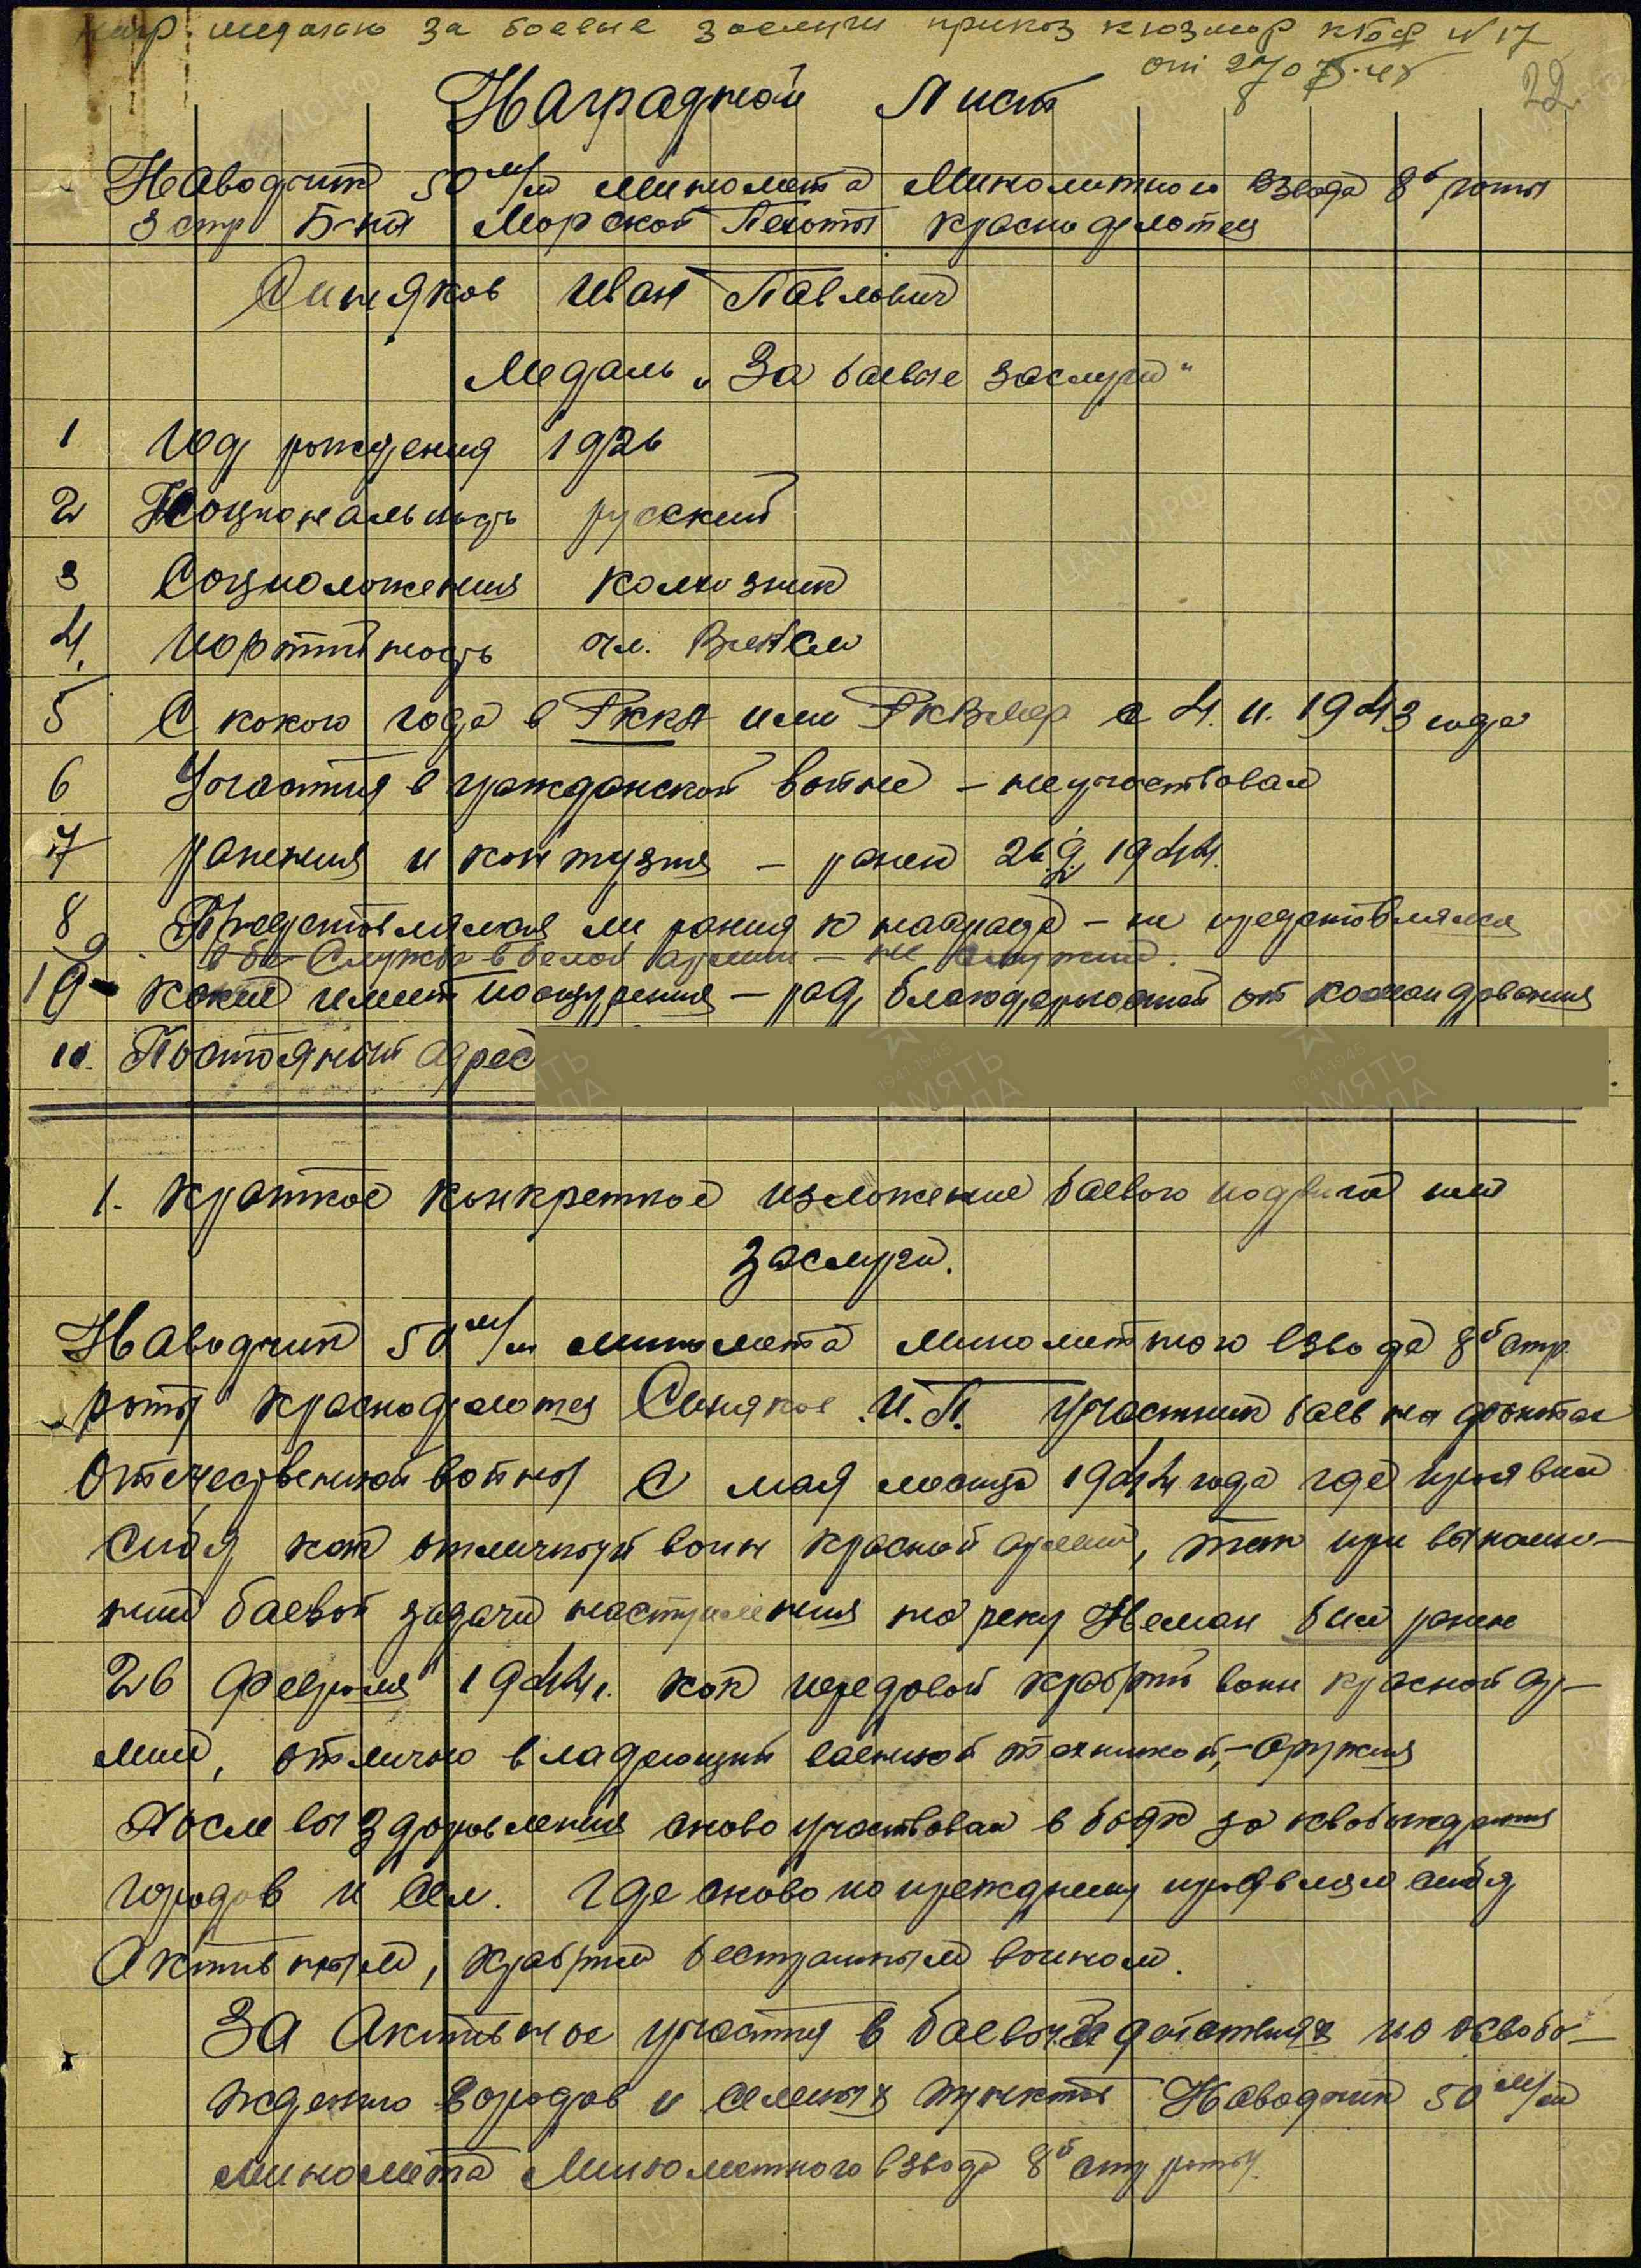 нагр. медалью за боевые заслуги приказ КЮЗмор КБФ №17
от 27.05.45
22
Наградной Лист
Наводчик 50 м/м миномета Минометного взвода 8й роты
3 стр Б-на Морской Пехоты краснофлотец
Синяков Иван Павлович
Медаль „За боевые заслуги"
1 Год рождения 1926
2 Национальность русский
3 Соцположения колхозник
4. Партийность чл. ВЛКСМ
5 С какого года в РККА или РКВМФ с 4.11.1943 года
6 Участия в гражданской войне – не участвовал
7 ранения и контузия – ранен 26.9.1944.
8 Представлялся ли рания к награде – не представлялся
9 Служба в белой армии – не служил.
10 какие имеет поощурения – ряд благодарностей от командования
11. Постоянный адрес
1. Краткое конкретное изложение боевого подвига или
заслуги.
Наводчик 50 м/м миномета минометного взвода 8й стр.
роты краснофлотец Синяков И.П. Участник боев на фронтах
Отечественной войны с мая месяца 1944 года где проявил
себя как отличный воин красной армии, так при выполне–
нии боевой задачи наступления на реку Неман был ранен
26 февраля 1944г. как передовой храбрый воин красной ар–
мии, отлично владеющий военной техникой, – оружия
После выздоровления снова участвовал в боях за освобождения
городов и сел. Где снова по прежднему проявлял себя
Активным, храбрым бестрашным воином.
За Активное участия в боевых действиях по освобо–
ждению городов и селеных пунктов Наводчик 50 м/м
миномета Минометного взвода 8й стр роты.